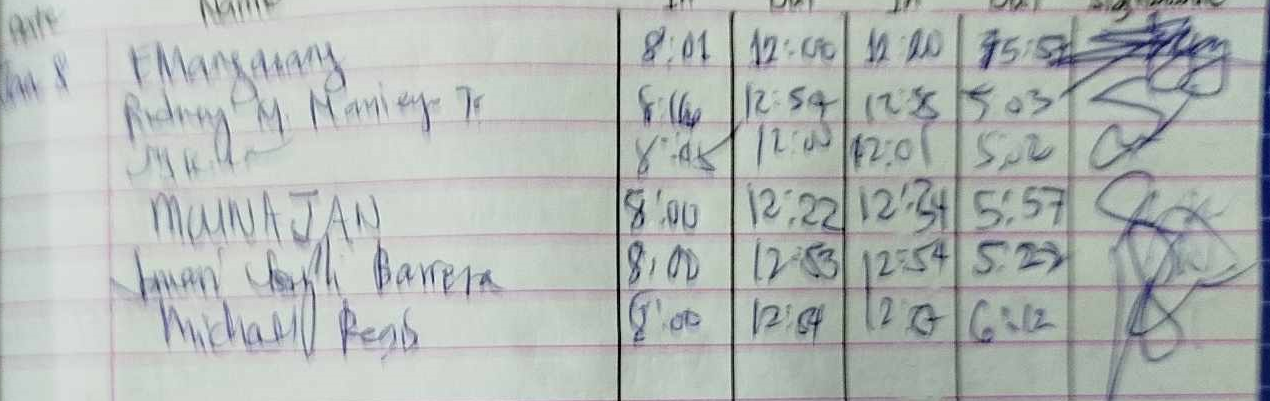 Date Name In Out In Out Signature
Jan 8 EMangarang 8:01 12:00 12:20 5:57
Rodney M. Manley Jr 8:16 12:54 5:03
8:05 12:00 12:01 5:02
MUNAJAN 8:00 12:22 12:34 5:57
Barrera 8:00 12:53 12:54 5:27
Michael 8:00 12:04 6:12